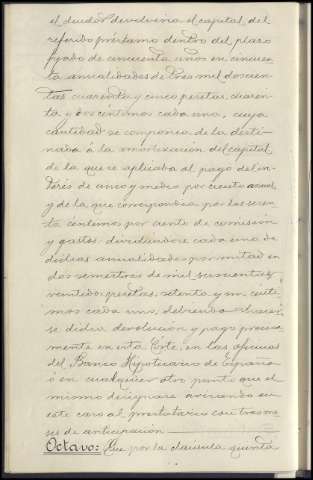 el deudor devolveria el capital del
referido préstamo dentro del plazo
fijado de cincuenta años en cincuen
ta anualidades de tres mil doscien
tas cuarenta y cinco pesetas, cuaren
ta y dos céntimos cada una, cuya
cantidad se componia de la desti-
nada á la amortización del capital
de la que se aplicaba al pago del in-
terés de cinco y medio por ciento anual
y de la que correspondia por los sesen
ta céntimos por ciento de comision
y gastos; dividiendose cada una de
dichas anualidades por mitad en
dos semestres de mil seiscientas
veintidos pesetas, setenta y un cénti-
mos cada uno, debiendo hacer
se dicha devolución y pago precisa
mente en esta Corte, en las oficinas
del Banco Hipotecario de España
ó en cualquier otro punto que el
mismo designare avisando en
este caso al prestatario con tres me
ses de anticipación
Octavo: Que por la cláusula quinta